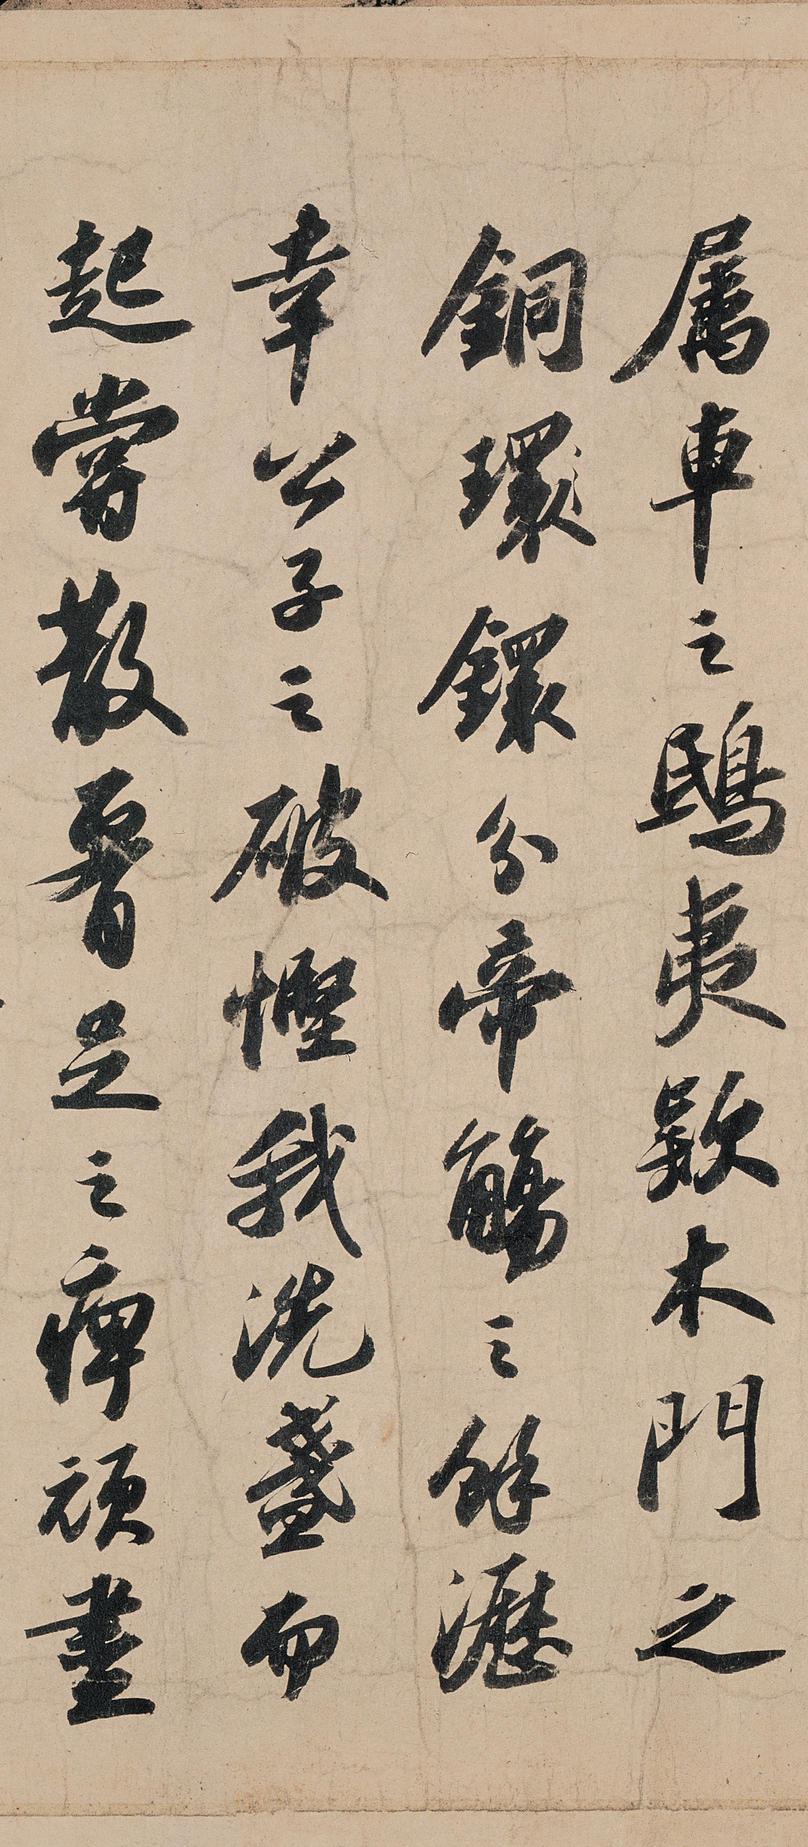 屬車之鴟夷款木門之
銅環鐶分帝觴之餘瀝
幸公子之破慳我洗盞而
起嘗散腰足之痺頑盡